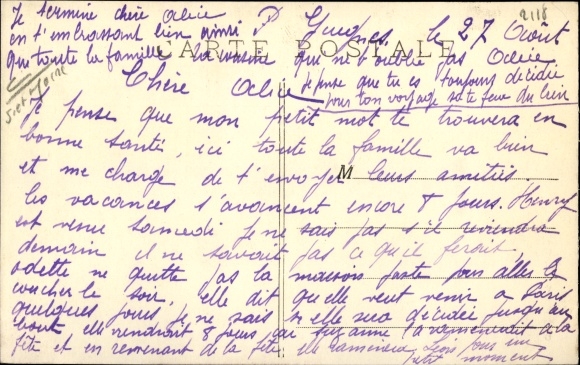 Je termine chère Alice
en t'embrassant bien ainsi
que toute la famille ta cousine
qui ne t'oublie pas Odette
2118
le 27 Août
CARTE POSTALE
Je pense que tu es toujours décidée
pour ton voyage sa te fera du bien
Chère Alice
Je pense que mon petit mot te trouvera en
bonne santé, ici toute la famille va bien
et me charge de t'envoyer leurs amitiés.
les vacances s'avancent encore 8 jours. Henry
est venu samedi je ne sais pas s'il reviendra
demain il ne savait pas ce qu'il ferait.
Odette ne quitte pas la maison juste pour aller se
coucher le soir, elle dit qu'elle veut venir a Paris
quelques jours je ne sais si elle sera décidée jusqu'au
bout, elle viendrait 8 jours, a la
fête et en revenant de la fête elle ramènera pour un
petit moment